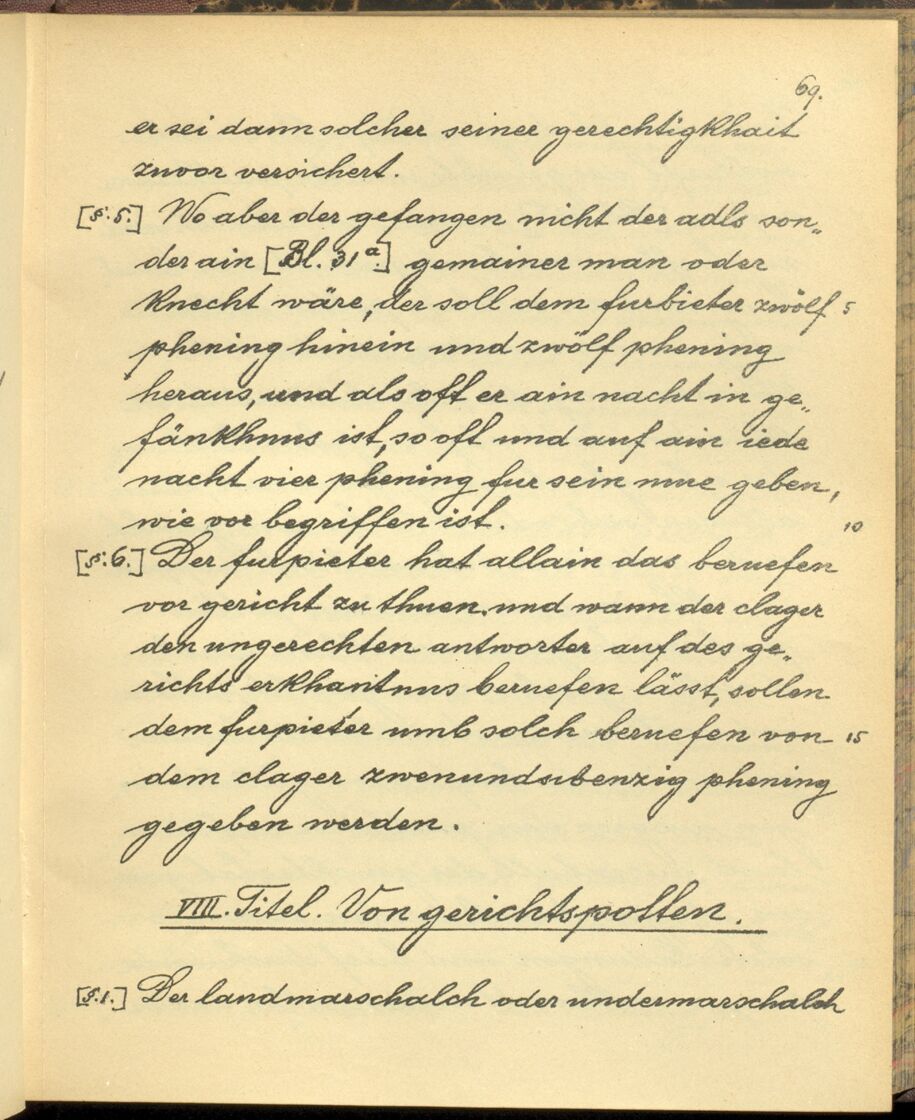 69.
er sei dann solcher seiner gerechtigkhait
zuvor versichert.
[§.5.] Wo aber der gefangen nicht der adls son„
der ain [Bl. 31a.] gemainer man oder
knecht wäre, der soll dem furbieter zwölf 5
phening hinein und zwölf phening
heraus, und als oft er ain nacht in ge„
fänkhnus ist, so oft und auf ain iede
nacht vier phening fur sein mue geben,
wie vor begriffen ist. 10
[§.6.] Der furpieter hat allain das beruefen
vor gericht zu thuen, und wann der clager
den ungerechten antworter auf des ge„
richts erkhantnus beruefen lässt, sollen
dem furpieter umb solch beruefen von 15
dem clager zwenundsibenzig phening
gegeben werden.
VIII. Titel. Von gerichtspotten.
[§.1.] Der landmarschalch oder undermarschalch